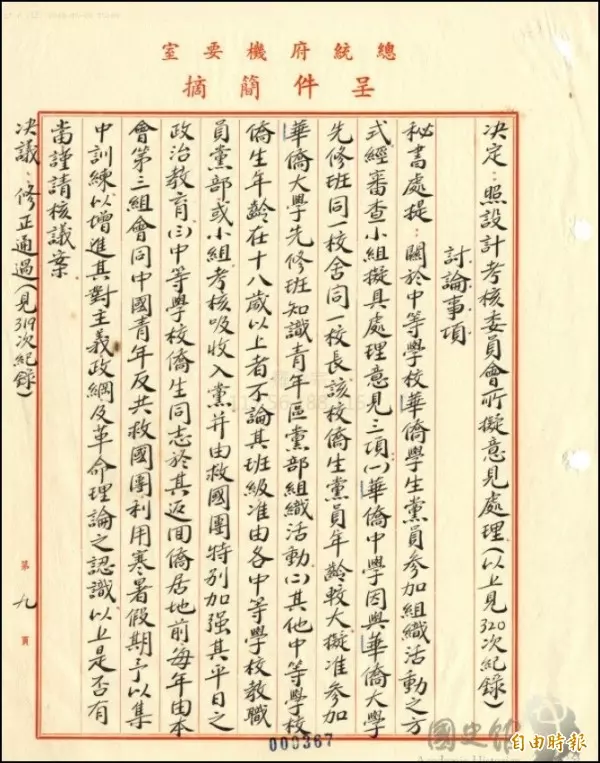 總統府機要室
呈件簡摘
決定：照設計考核委員會所擬意見處理(以上見320次紀錄)
討論事項
秘書處提：關於中等學校華僑學生黨員參加組織活動之方
式經審查小組擬具處理意見三項(一)華僑中學因與華僑大學
先修班同一校舍同一校長該校僑生黨員年齡較大擬准參加
華僑大學先修班知識青年區黨部組織活動(二)其他中等學校
僑生年齡在十八歲以上者不論其班級准由各中等學校教職
員黨部或小組考核吸收入黨并由救國團特別加强其平日之
政治教育(三)中等學校僑生同志於其返回僑居地前每年由本
會第三組會同中國青年反共救國團利用寒暑假期予以集
中訓練以增進其對主義政綱及革命理論之認識以上是否有
當謹請核議案
決議：修正通過(見319次紀錄)
第九頁
000367
國史館
自由時報